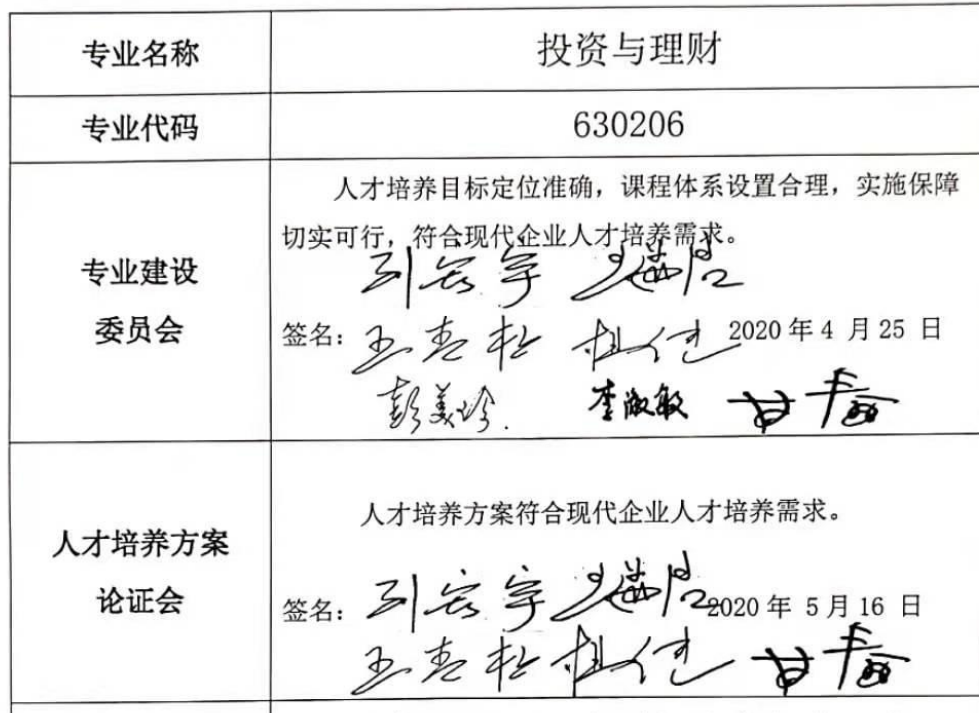 专业名称
投资与理财
专业代码
630206
专业建设
委员会
人才培养目标定位准确，课程体系设置合理，实施保障
切实可行，符合现代企业人才培养需求。
签名：
2020 年 4 月 25 日
彭美玲 李淑敏
人才培养方案
论证会
人才培养方案符合现代企业人才培养需求。
签名：
2020 年 5 月 16 日